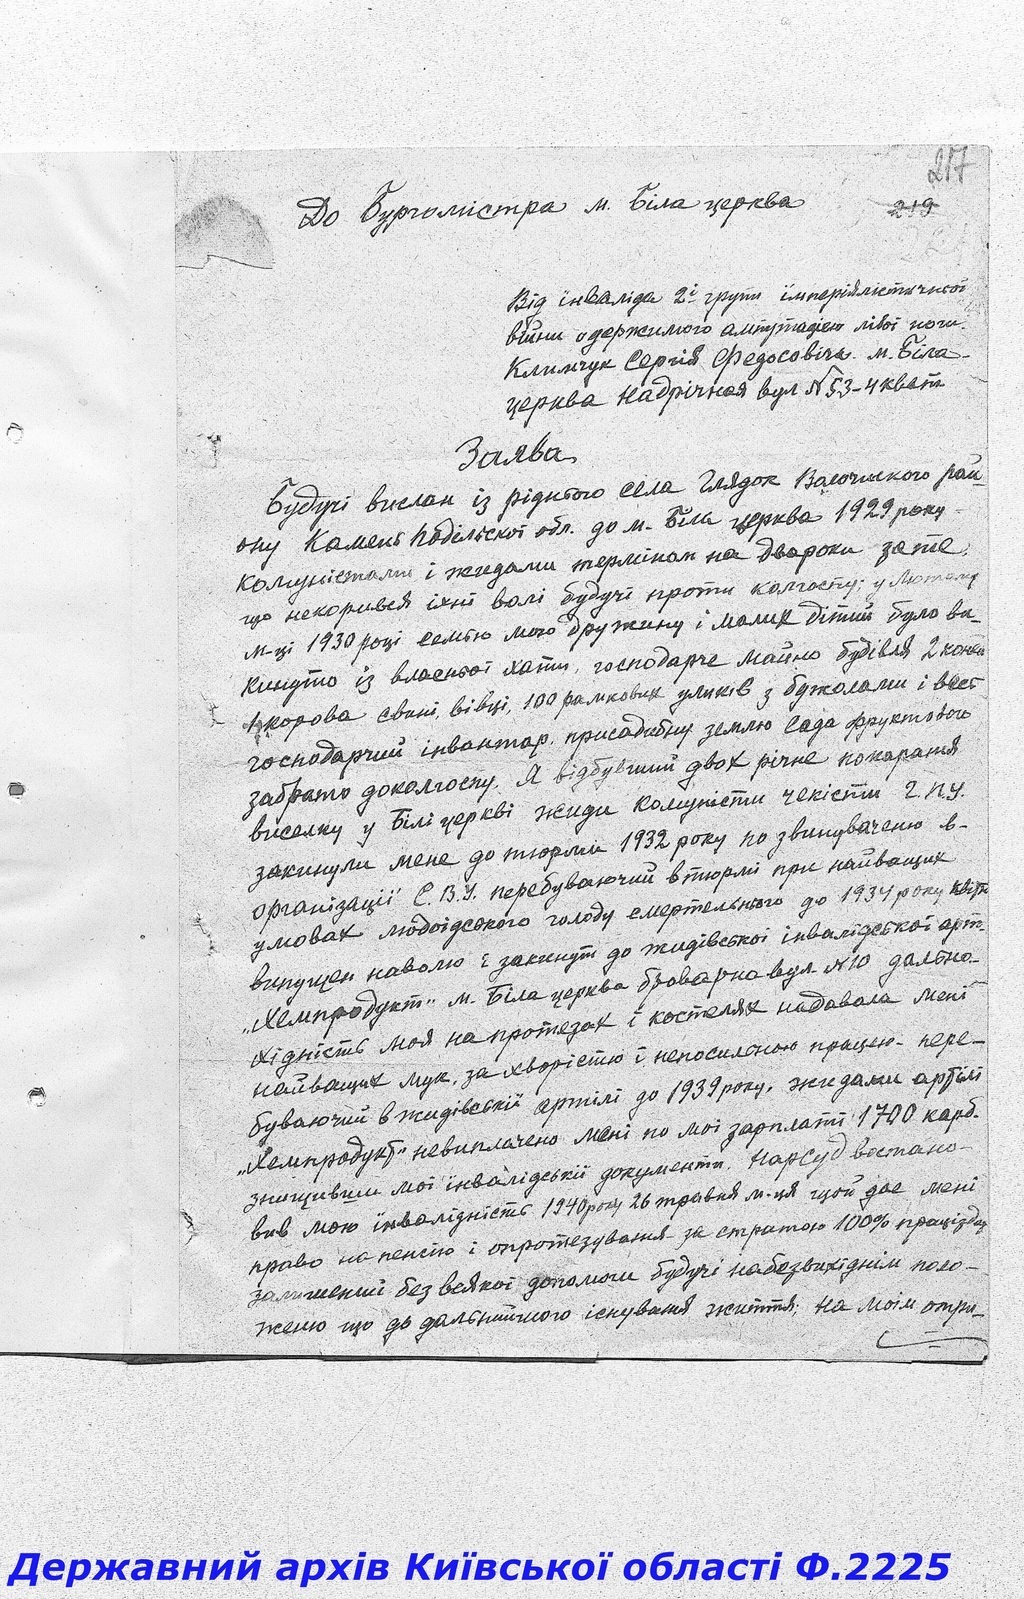 217
До Бургомістра м. Біла церква 219
Від інваліда 2ї групи імперіялістичної
війни одержимого ампутацією лівої ноги.
Климчук Сергія Федосовіча. м. Біла-
церква Надрічная вул №53-4 кварт
Заява
Будучі вислан із рідного села Глядок Волочиського рай-
ону Камень Подільскої обл. до м. Біла церква 1929 року
комуністами і жидами терміном на двароки зате,
що некорився їхні волі будучі проти колгоспу; у лютому
м-ці 1930 році семью мою дружину і малих дітий було ви-
кинуто із власной хати, господарче майно будівля 2 коней
1 корова свині, вівці, 100 рамкових уликів з бжолами і весь
господарчий інвантар, присадибну землю сада фруктового
забрато доколгоспу. Я відбувший двох річне покараня
виселку у Білі церкві жиди комуністи чекісти Г.П.У.
закинули мене до тюрми 1932 року по звинуваченю в-
організації С.В.У. перебуваючий втюрмі при найващих
умовах людоїдського голоду смертельного до 1934 року квітня
випущен наволю і закинут до жидівської інвалідської арт.
„Хемпродукт" м. Біла церква броварна вул №10 дально-
хідність моя на протезах і костелях надавала мені
найващих мук, за хворістю і непосильною працею- пере-
буваючий в жидівській артілі до 1939 року, жидами артілі
„Хемпродукт" невиплачено мені по мої зарплаті 1700 карб.
знищивши мої інвалідські документи. Нарсуд востано-
вив мою інвалідність 1940 року 26 травня м-ця щой дає мені
право на пенсію і опротезування за стратою 100% працізд.
залишений без всякої допомоги будучі набезвихіднім поло-
женю що до дальнійшого існуваня життя; на моїм отри-
Державний архів Київської області Ф.2225